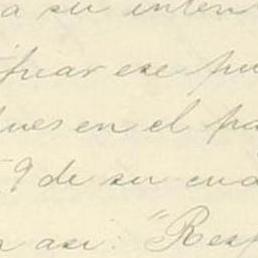 a su inten
ese pu
ues en el pa
9 de su cua
asi: "Resp